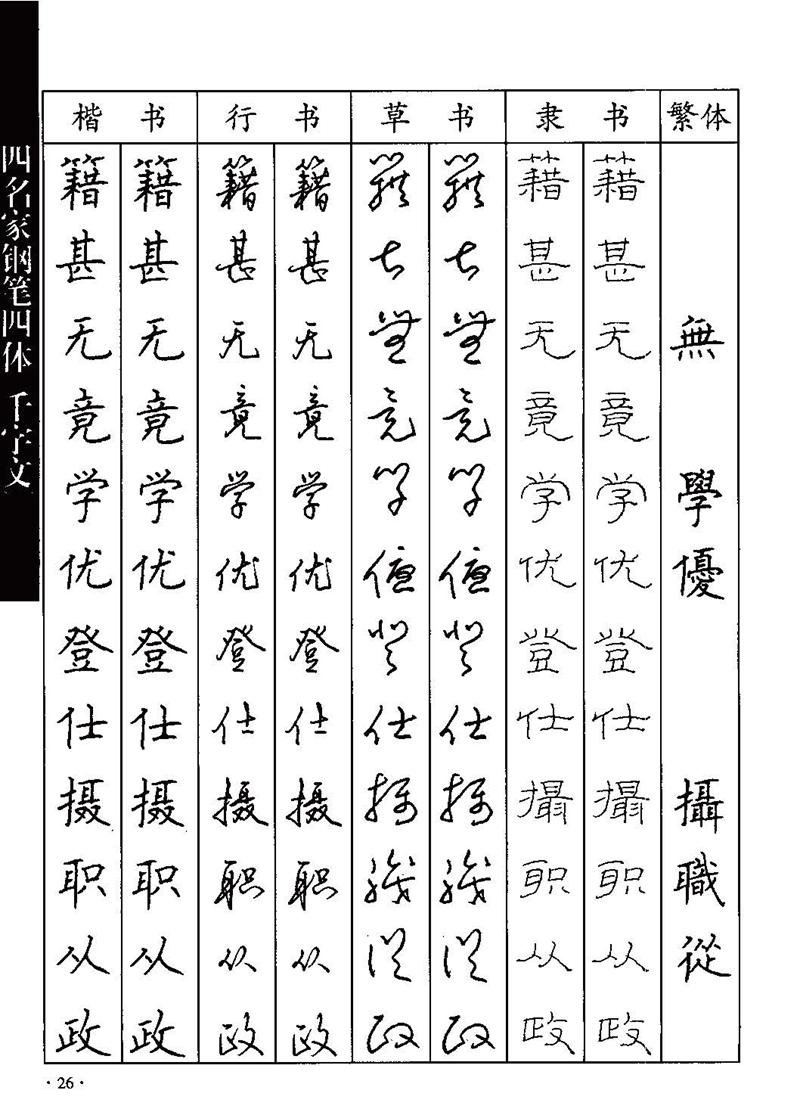 四名家钢笔四体 千字文
楷书 行书 草书 隶书 繁体
籍 籍 籍 籍 籍 籍 籍 籍
甚 甚 甚 甚 甚 甚 甚 甚
无 无 无 无 無 無 无 无 無
竟 竟 竟 竟 竟 竟 竟 竟
学 学 学 学 学 学 学 学 學
优 优 优 优 優 優 优 优 優
登 登 登 登 登 登 登 登
仕 仕 仕 仕 仕 仕 仕 仕
摄 摄 摄 摄 攝 攝 攝 攝 攝
职 职 职 职 職 職 职 职 職
从 从 从 从 從 從 从 从 從
政 政 政 政 政 政 政 政
·26·